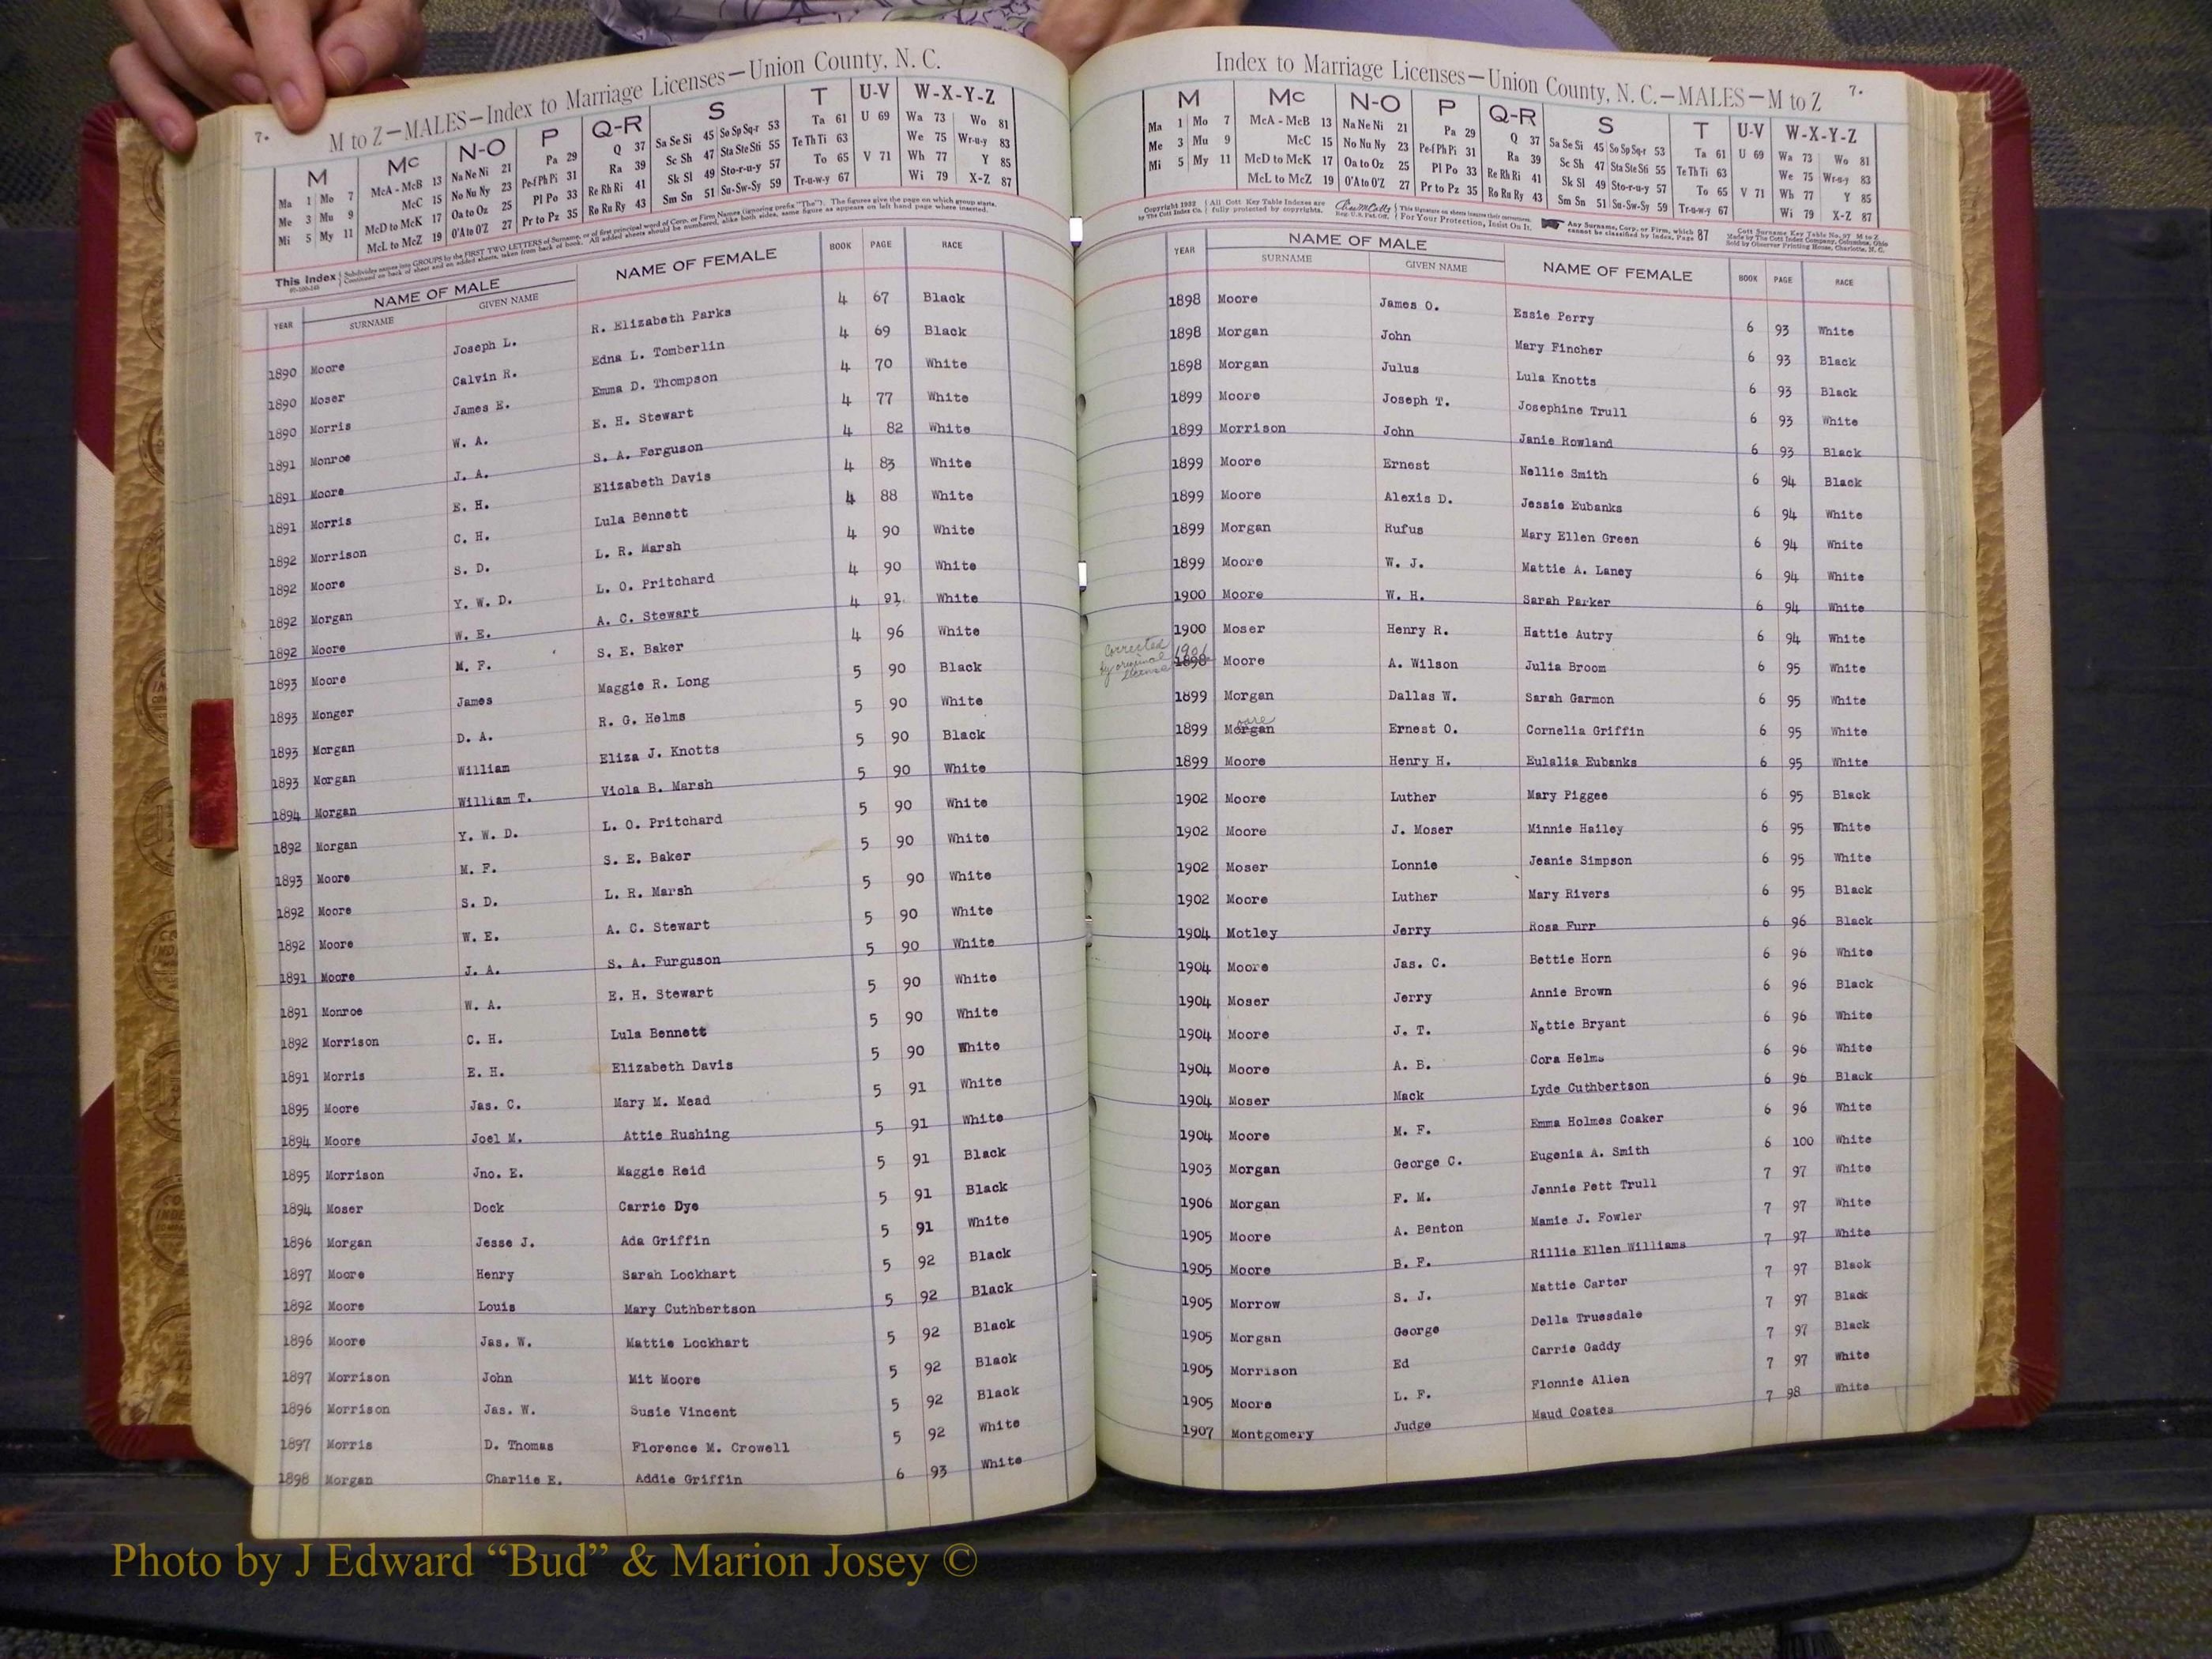 7.
M to Z—MALES—Index to Marriage Licenses—Union County, N. C.
M Mc N-O P Q-R S T U-V W-X-Y-Z
Ma 1 Mo 7 McA - McB 13 Na Ne Ni 21 Pa 29 Q 37 Sa Se Si 45 So Sp Sq-r 53 Ta 61 U 69 Wa 73 Wo 81
Me 3 Mu 9 McC 15 No Nu Ny 23 Pe-f Ph Pi 31 Ra 39 Sc Sh 47 Sta Ste Sti 55 Te Th Ti 63 We 75 Wr-u-y 83
Mi 5 My 11 McD to McK 17 Oa to Oz 25 Pl Po 33 Re Rh Ri 41 Sk Sl 49 Sto-r-u-y 57 To 65 V 71 Wh 77 Y 85
McL to McZ 19 O'A to O'Z 27 Pr to Pz 35 Ro Ru Ry 43 Sm Sn 51 Su-Sw-Sy 59 Tr-u-w-y 67 Wi 79 X-Z 87
This Index Subdivides names into GROUPS by the FIRST TWO LETTERS of Surname, or of first principal word of Corp. or Firm Names (ignoring prefix "The"). The figures give the page on which group starts.
Continued on back of sheet and on added sheets, taken from back of book. All added sheets should be numbered, alike both sides, same figure as appears on left hand page where inserted.
NAME OF MALE NAME OF FEMALE BOOK PAGE RACE
YEAR SURNAME GIVEN NAME
1890 Moore Joseph L. R. Elizabeth Parks 4 67 Black
1890 Moser Calvin R. Edna L. Tomberlin 4 69 Black
1890 Morris James E. Emma D. Thompson 4 70 White
1891 Monroe W. A. E. H. Stewart 4 77 White
1891 Moore J. A. S. A. Ferguson 4 82 White
1891 Morris E. H. Elizabeth Davis 4 83 White
1892 Morrison C. H. Lula Bennett 4 88 White
1892 Moore S. D. L. R. Marsh 4 90 White
1892 Morgan Y. W. D. L. O. Pritchard 4 90 White
1892 Moore W. E. A. C. Stewart 4 91 White
1893 Moore M. F. S. E. Baker 4 96 White
1893 Monger James Maggie R. Long 5 90 Black
1893 Morgan D. A. R. G. Helms 5 90 White
1893 Morgan William Eliza J. Knotts 5 90 Black
1894 Morgan William T. Viola B. Marsh 5 90 White
1892 Morgan Y. W. D. L. O. Pritchard 5 90 White
1893 Moore M. F. S. E. Baker 5 90 White
1892 Moore S. D. L. R. Marsh 5 90 White
1892 Moore W. E. A. C. Stewart 5 90 White
1891 Moore J. A. S. A. Furguson 5 90 White
1891 Monroe W. A. E. H. Stewart 5 90 White
1892 Morrison C. H. Lula Bennett 5 90 White
1891 Morris E. H. Elizabeth Davis 5 90 White
1895 Moore Jas. C. Mary M. Mead 5 91 White
1894 Moore Joel M. Attie Rushing 5 91 White
1895 Morrison Jno. E. Maggie Reid 5 91 Black
1894 Moser Dock Carrie Dye 5 91 Black
1896 Morgan Jesse J. Ada Griffin 5 91 White
1897 Moore Henry Sarah Lockhart 5 92 Black
1892 Moore Louis Mary Cuthbertson 5 92 Black
1896 Moore Jas. W. Mattie Lockhart 5 92 Black
1897 Morrison John Mit Moore 5 92 Black
1896 Morrison Jas. W. Susie Vincent 5 92 Black
1897 Morris D. Thomas Florence M. Crowell 5 92 White
1898 Morgan Charlie E. Addie Griffin 6 93 White
Index to Marriage Licenses—Union County, N. C.—MALES—M to Z
7.
M Mc N-O P Q-R S T U-V W-X-Y-Z
Ma 1 Mo 7 McA - McB 13 Na Ne Ni 21 Pa 29 Q 37 Sa Se Si 45 So Sp Sq-r 53 Ta 61 U 69 Wa 73 Wo 81
Me 3 Mu 9 McC 15 No Nu Ny 23 Pe-f Ph Pi 31 Ra 39 Sc Sh 47 Sta Ste Sti 55 Te Th Ti 63 We 75 Wr-u-y 83
Mi 5 My 11 McD to McK 17 Oa to Oz 25 Pl Po 33 Re Rh Ri 41 Sk Sl 49 Sto-r-u-y 57 To 65 V 71 Wh 77 Y 85
McL to McZ 19 O'A to O'Z 27 Pr to Pz 35 Ro Ru Ry 43 Sm Sn 51 Su-Sw-Sy 59 Tr-u-w-y 67 Wi 79 X-Z 87
Copyright 1932 All Cott Key Table Indexes are This signature on sheets insures their correctness. Any Surname, Corp. or Firm, which Cott Surname Key Table No. 97 M to Z
by The Cott Index Co. fully protected by copyrights. Reg. U.S. Pat. Off. For Your Protection, Insist On It. cannot be classified by Index, Page 87 Made by The Cott Index Company, Columbus, Ohio
Sold by Observer Printing House, Charlotte, N. C.
NAME OF MALE NAME OF FEMALE BOOK PAGE RACE
YEAR SURNAME GIVEN NAME
1898 Moore James O. Essie Perry 6 93 White
1898 Morgan John Mary Fincher 6 93 Black
1898 Morgan Julus Lula Knotts 6 93 Black
1899 Moore Joseph T. Josephine Trull 6 93 White
1899 Morrison John Janie Rowland 6 93 Black
1899 Moore Ernest Nellie Smith 6 94 Black
1899 Moore Alexis D. Jessie Eubanks 6 94 White
1899 Morgan Rufus Mary Ellen Green 6 94 White
1899 Moore W. J. Mattie A. Laney 6 94 White
1900 Moore W. H. Sarah Parker 6 94 White
1900 Moser Henry R. Hattie Autry 6 94 White
Corrected by original license 1901
1898 Moore A. Wilson Julia Broom 6 95 White
1899 Morgan Dallas W. Sarah Garmon 6 95 White
oore
1899 Morgan Ernest O. Cornelia Griffin 6 95 White
1899 Moore Henry H. Eulalia Eubanks 6 95 White
1902 Moore Luther Mary Piggee 6 95 Black
1902 Moore J. Moser Minnie Hailey 6 95 White
1902 Moser Lonnie Jeanie Simpson 6 95 White
1902 Moore Luther Mary Rivers 6 95 Black
1904 Motley Jerry Rosa Furr 6 96 Black
1904 Moore Jas. C. Bettie Horn 6 96 White
1904 Moser Jerry Annie Brown 6 96 Black
1904 Moore J. T. Nettie Bryant 6 96 White
1904 Moore A. B. Cora Helms 6 96 White
1904 Moser Mack Lyde Cuthbertson 6 96 Black
1904 Moore M. F. Emma Holmes Coaker 6 96 White
1903 Morgan George C. Eugenia A. Smith 6 100 White
1906 Morgan F. M. Jennie Pett Trull 7 97 White
1905 Moore A. Benton Mamie J. Fowler 7 97 White
1905 Moore B. F. Rillie Ellen Williams 7 97 White
1905 Morrow S. J. Mattie Carter 7 97 Black
1905 Morgan George Della Truesdale 7 97 Black
1905 Morrison Ed Carrie Gaddy 7 97 Black
1905 Moore L. F. Flonnie Allen 7 97 White
1907 Montgomery Judge Maud Coates 7 98 White
Photo by J Edward “Bud” & Marion Josey ©